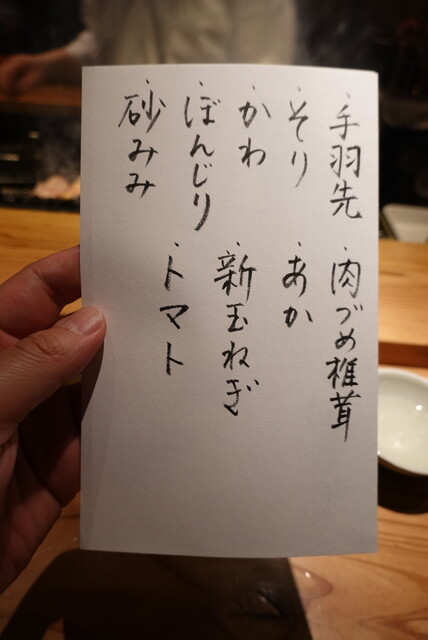 ・手羽先
・そり
・かわ
・ぼんじり
・砂みみ
・肉づめ椎茸
・あか
・新玉ねぎ
・トマト